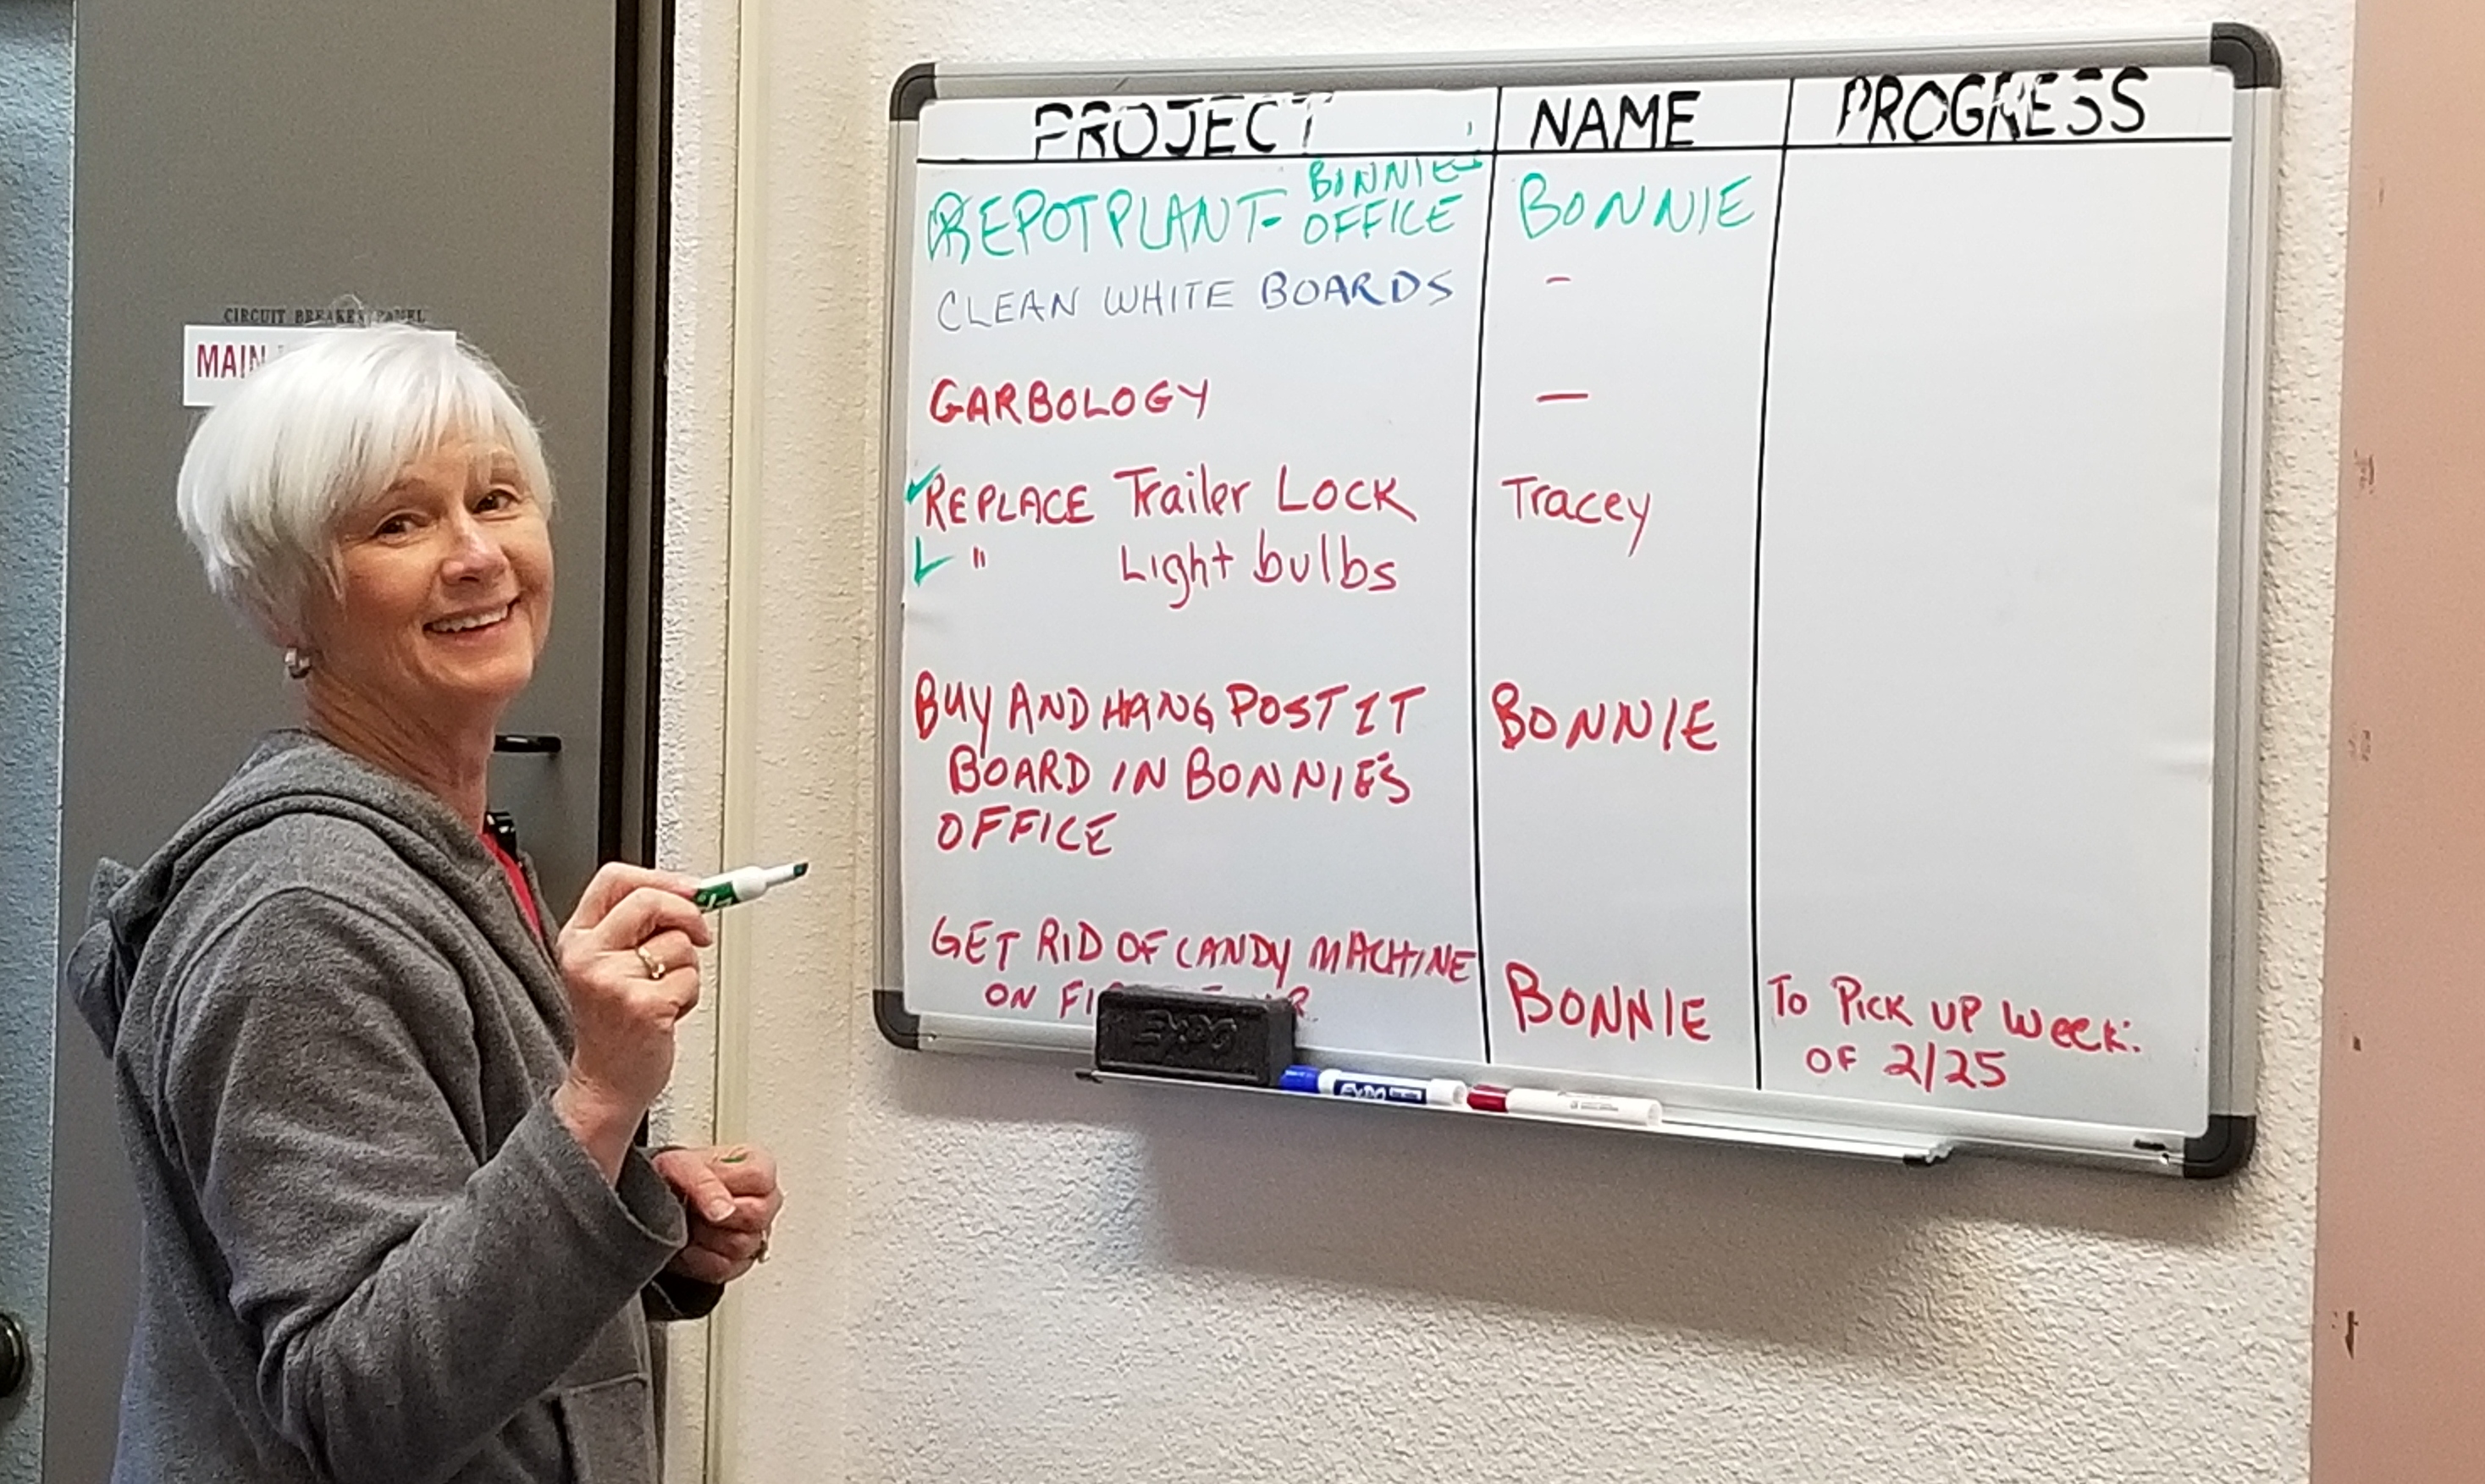 CIRCUIT BREAKER PANEL
MAIN
PROJECT NAME PROGRESS
REPOT PLANT- BONNIE'S OFFICE BONNIE
CLEAN WHITE BOARDS -
GARBOLOGY —
✓REPLACE Trailer LOCK Tracey
✓ " Light bulbs
BUY AND HANG POST IT BONNIE
BOARD IN BONNIE'S
OFFICE
GET RID OF CANDY MACHINE
ON BONNIE TO PICK UP WEEK:
OF 2/25
EXPO